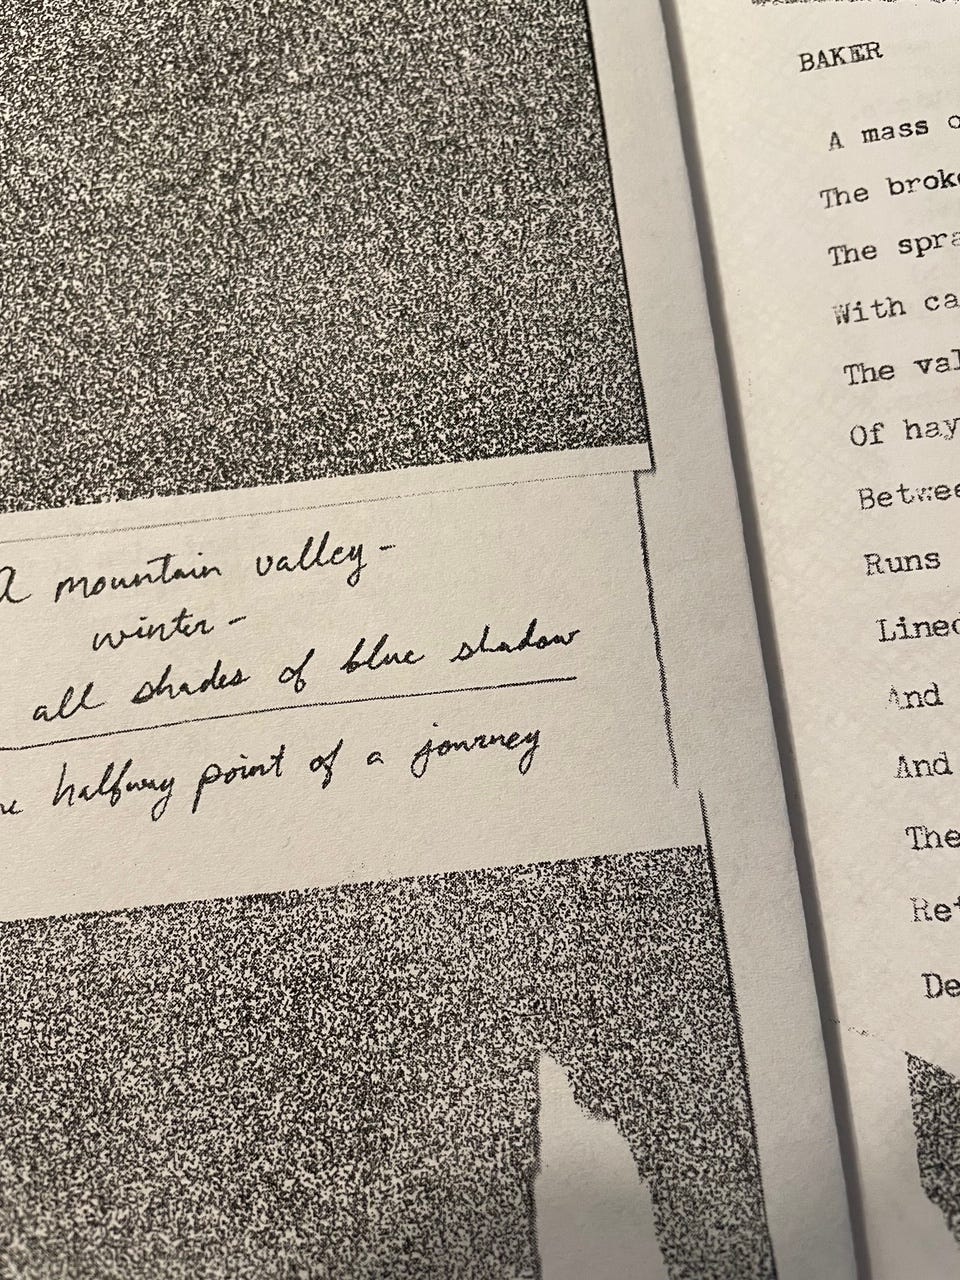 A mountain valley -
winter -
all shades of blue shadow
halfway point of a journey
BAKER
A mass o
The broke
The spra
With ca
The val
Of hay
Betwee
Runs
Lined
And
And
The
Ret
De